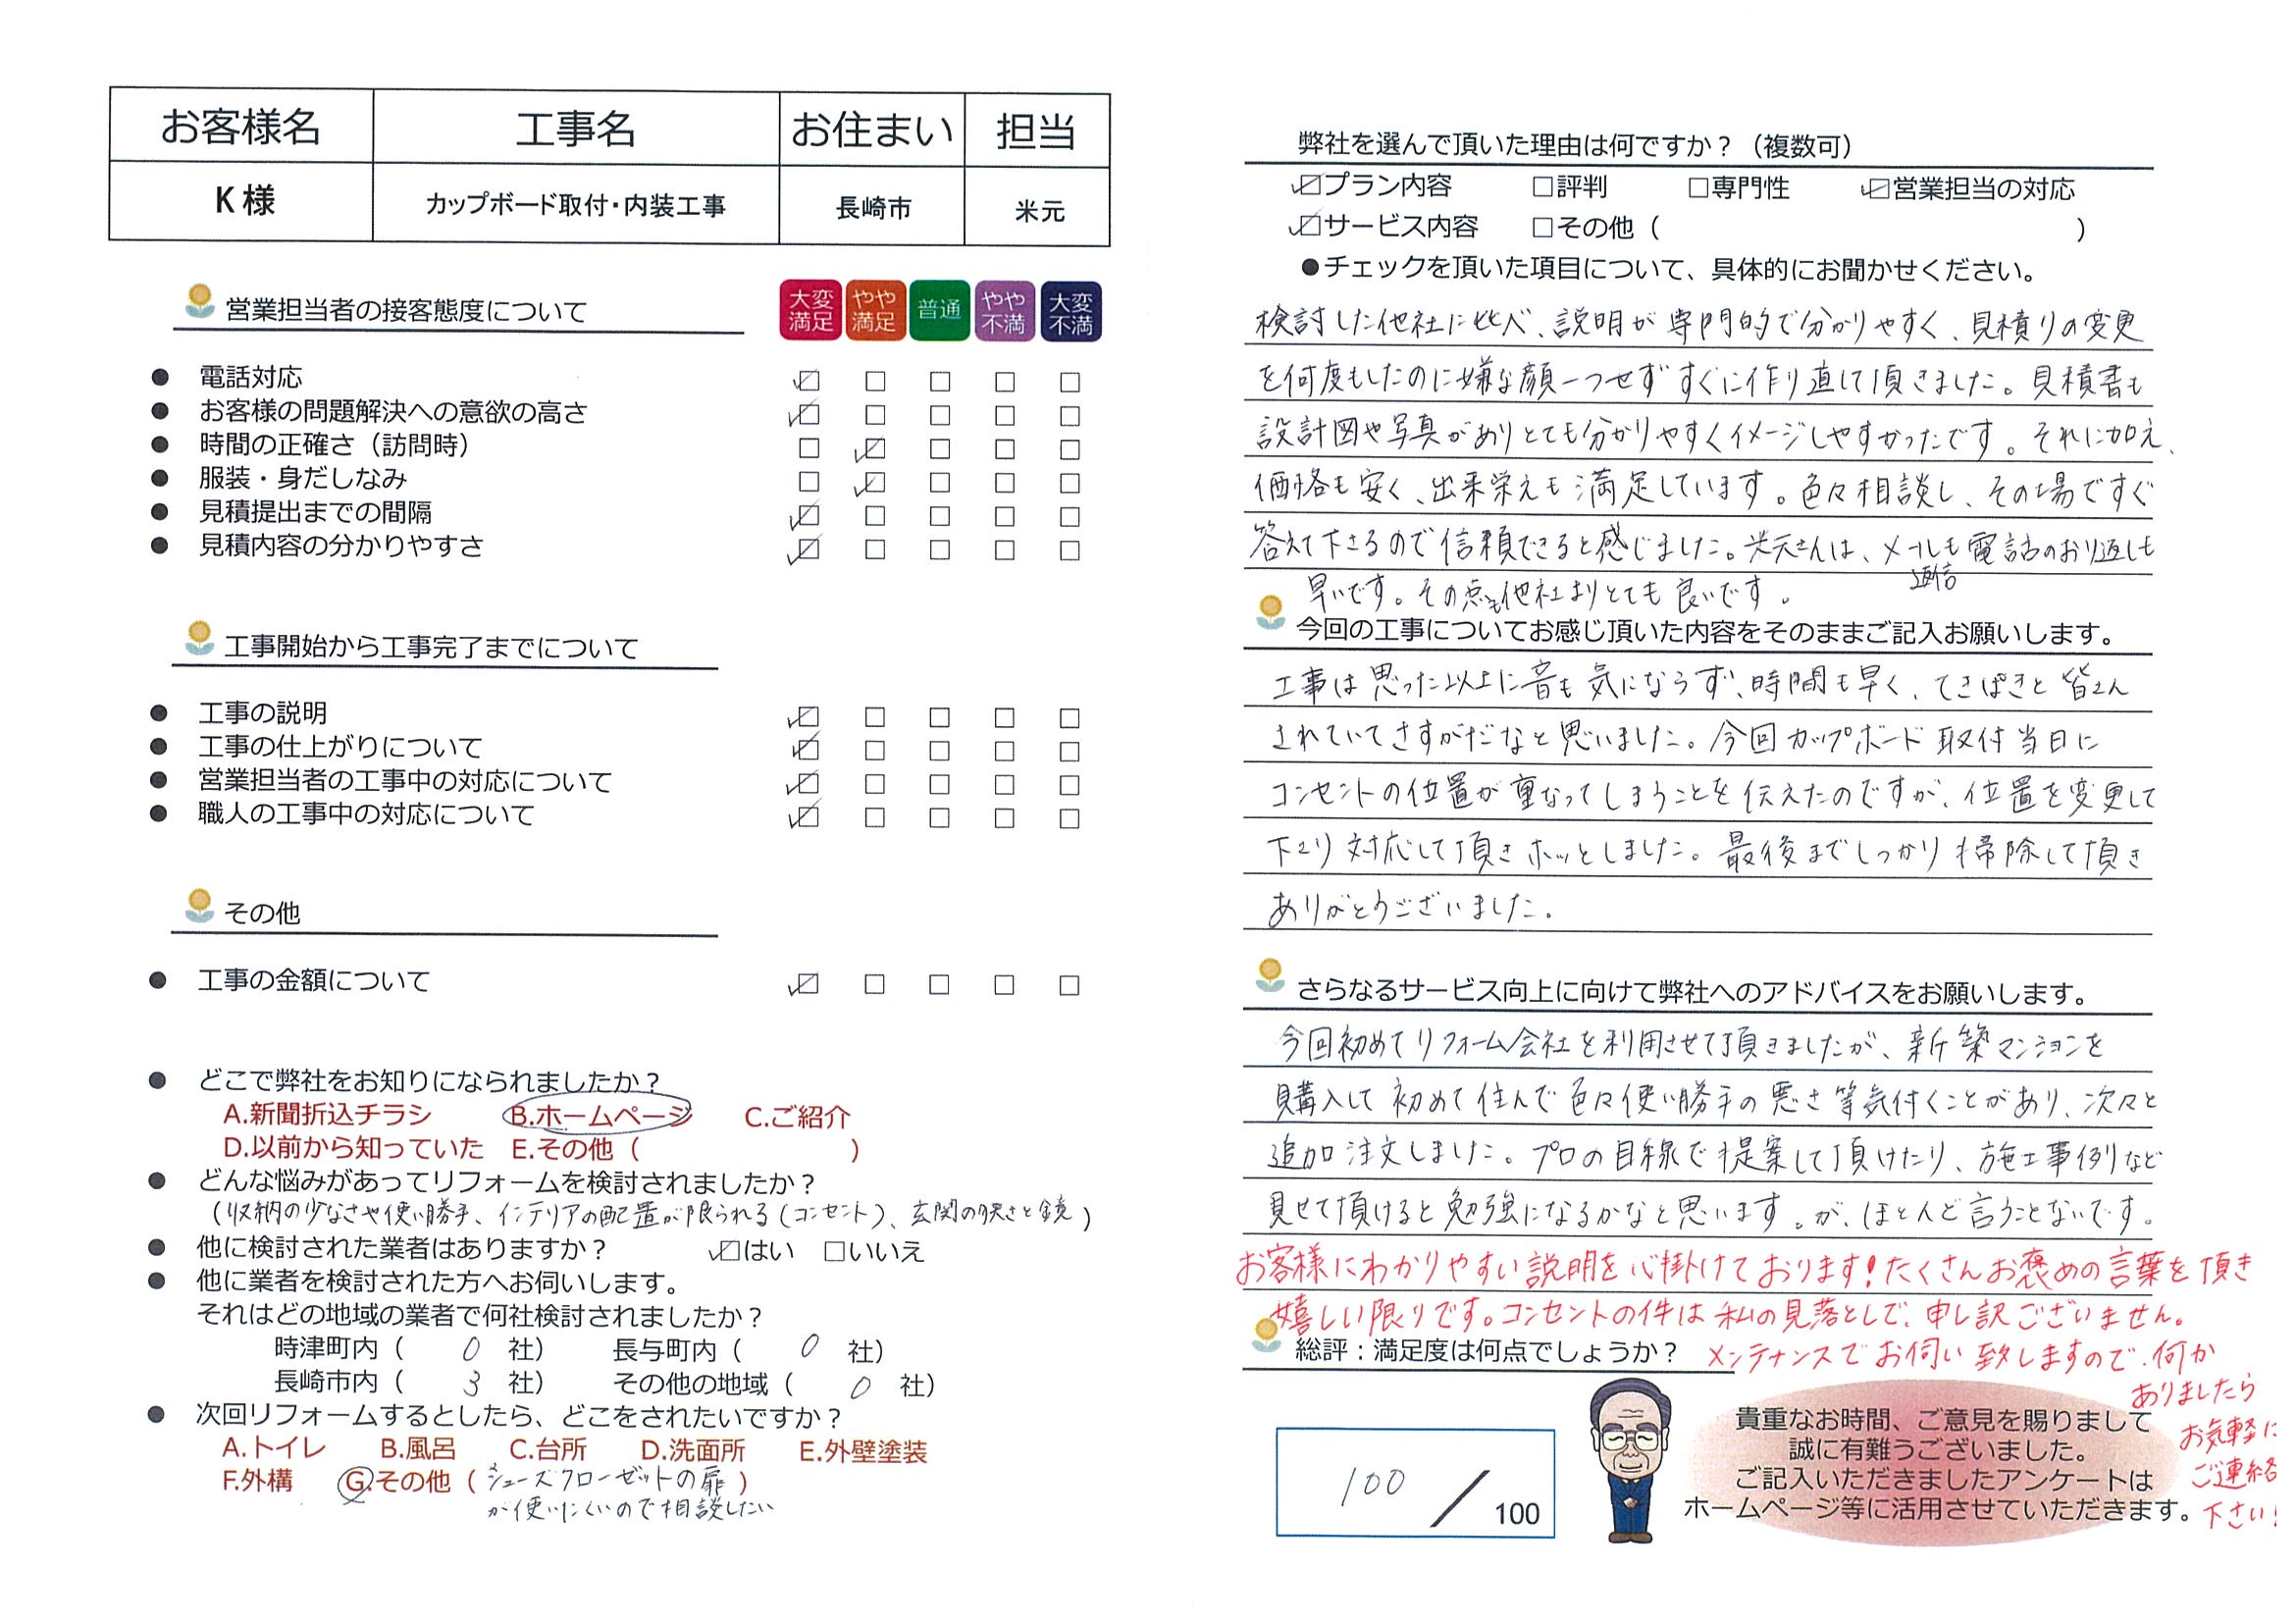 お客様名 工事名 お住まい 担当
K様 カップボード取付・内装工事 長崎市 米元
営業担当者の接客態度について
大変満足 やや満足 普通 やや不満 大変不満
● 電話対応 ☑ □ □ □ □
● お客様の問題解決への意欲の高さ ☑ □ □ □ □
● 時間の正確さ（訪問時） □ ☑ □ □ □
● 服装・身だしなみ □ ☑ □ □ □
● 見積提出までの間隔 ☑ □ □ □ □
● 見積内容の分かりやすさ ☑ □ □ □ □
工事開始から工事完了までについて
● 工事の説明 ☑ □ □ □ □
● 工事の仕上がりについて ☑ □ □ □ □
● 営業担当者の工事中の対応について ☑ □ □ □ □
● 職人の工事中の対応について ☑ □ □ □ □
その他
● 工事の金額について ☑ □ □ □ □
● どこで弊社をお知りになられましたか？
A.新聞折込チラシ B.ホームページ C.ご紹介
D.以前から知っていた E.その他（ ）
● どんな悩みがあってリフォームを検討されましたか？
（収納の少なさや使い勝手、インテリアの配置が限られる（コンセント）、玄関の狭さと鏡）
● 他に検討された業者はありますか？ ☑はい □いいえ
● 他に業者を検討された方へお伺いします。
それはどの地域の業者で何社検討されましたか？
時津町内（ 0 社） 長与町内（ 0 社）
長崎市内（ 3 社） その他の地域（ 0 社）
● 次回リフォームするとしたら、どこをされたいですか？
A.トイレ B.風呂 C.台所 D.洗面所 E.外壁塗装
F.外構 G.その他（シューズクローゼットの扉）
が使いにくいので相談したい
弊社を選んで頂いた理由は何ですか？（複数可）
☑プラン内容 □評判 □専門性 ☑営業担当の対応
☑サービス内容 □その他（ ）
●チェックを頂いた項目について、具体的にお聞かせください。
検討した他社に比べ、説明が専門的で分かりやすく、見積りの変更
を何度もしたのに嫌な顔一つせずすぐに作り直して頂きました。見積書も
設計図や写真がありとても分かりやすくイメージしやすかったです。それに加え、
価格も安く、出来栄えも満足しています。色々相談し、その場ですぐ
答えて下さるので信頼できると感じました。米元さんは、メールも電話のおり返しも
返信
早いです。その点も他社よりとても良いです。
今回の工事についてお感じ頂いた内容をそのままご記入お願いします。
工事は思った以上に音も気にならず、時間も早く、てきぱきと皆さん
されていてさすがだなと思いました。今回カップボード取付当日に
コンセントの位置が重なってしまうことを伝えたのですが、位置を変更して
下さり対応して頂きホッとしました。最後までしっかり掃除して頂き
ありがとうございました。
さらなるサービス向上に向けて弊社へのアドバイスをお願いします。
今回初めてリフォーム会社を利用させて頂きましたが、新築マンションを
購入して初めて住んで色々使い勝手の悪さ等気付くことがあり、次々と
追加注文しました。プロの目線で提案して頂けたり、施工事例など
見せて頂けると勉強になるかなと思います。が、ほとんど言うことないです。
お客様にわかりやすい説明を心掛けております！たくさんお褒めの言葉を頂き
嬉しい限りです。コンセントの件は私の見落としで、申し訳ございません。
総評：満足度は何点でしょうか？ メンテナンスでお伺い致しますので、何か
ありましたら
お気軽に
ご連絡
下さい！
100 / 100
貴重なお時間、ご意見を賜りまして
誠に有難うございました。
ご記入いただきましたアンケートは
ホームページ等に活用させていただきます。